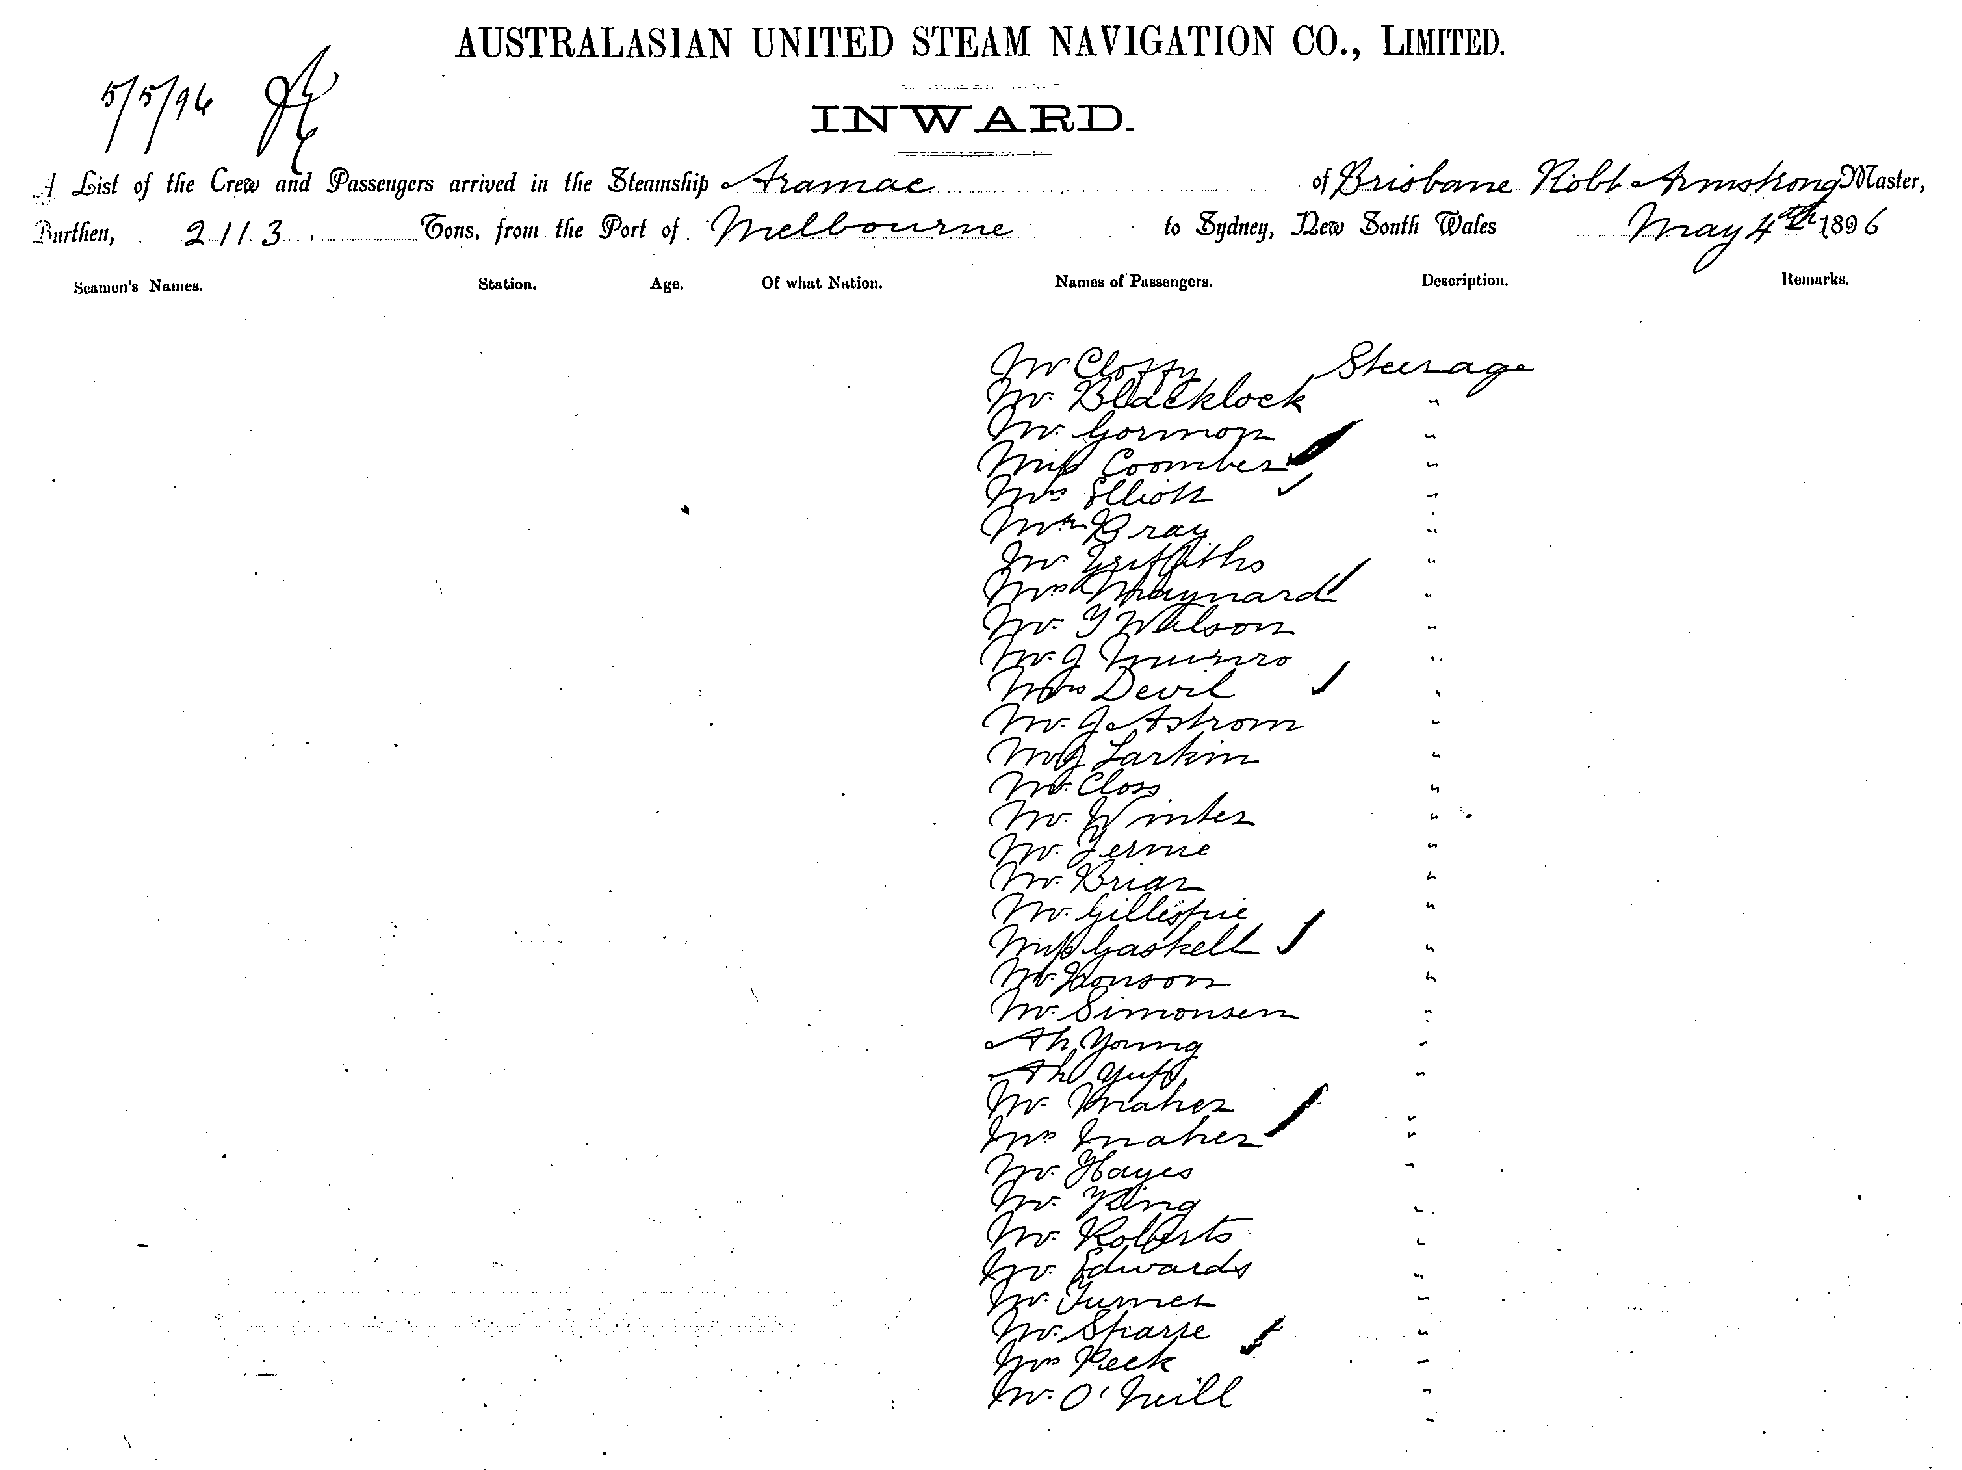 AUSTRALASIAN UNITED STEAM NAVIGATION CO., LIMITED.
5/5/96
INWARD.
A List of the Crew and Passengers arrived in the Steamship Aramac of Brisbane Robt Armstrong Master,
Burthen, 2113 Tons, from the Port of Melbourne to Sydney, New South Wales May 4th 1896
Seamen's Names. Station. Age. Of what Nation. Names of Passengers. Description. Remarks.
Mr Steerage
Mr. Blacklock "
Mr. Gorman "
Miss Coomber "
Mrs Elliott "
Bray "
Mr Griffiths "
Mrs Maynard "
Mr. Watson "
Mr. J Munro "
Mrs Devil "
Mr. J. Astrom "
Mr J Larkin "
Mr. Closs "
Mr. Winter "
Mr. "
Mr. Briar "
Mr. Gillespie "
Miss Gaskell "
Mr. "
Mr. Simonsen "
Ah Young "
Ah "
Mr. Maher "
Mrs Maher "
Mr. Hayes "
Mr. King "
Mr. Roberts "
Mr. Edwards "
Mr. Turner "
Mr. "
Mrs Peck "
Mr. O'Neill "